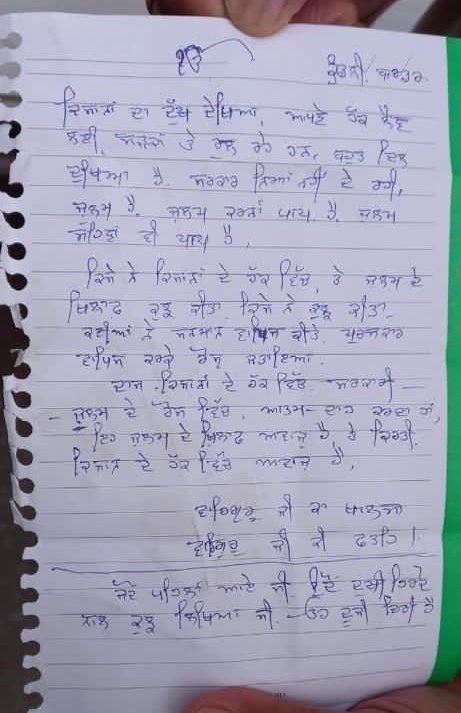 ੴ
ਕੁੰਡਲੀ ਬਾਰਡਰ
ਕਿਸਾਨਾਂ ਦਾ ਦੁੱਖ ਦੇਖਿਆ, ਆਪਣੇ ਹੱਕ ਲੈਣ
ਲਈ, ਸੜਕਾਂ ਤੇ ਰੁਲ ਰਹੇ ਹਨ, ਬਹੁਤ ਦਿਲ
ਦੁਖਿਆ ਹੈ. ਸਰਕਾਰ ਨਿਆਂ ਨਹੀਂ ਦੇ ਰਹੀ,
ਜੁਲਮ ਹੈ. ਜੁਲਮ ਕਰਨਾ ਪਾਪ ਹੈ. ਜੁਲਮ
ਸਹਿਣਾ ਵੀ ਪਾਪ ਹੈ,
ਕਿਸੇ ਨੇ ਕਿਸਾਨਾਂ ਦੇ ਹੱਕ ਵਿੱਚ, ਤੇ ਜੁਲਮ ਦੇ
ਖਿਲਾਫ ਕੁਝ ਕੀਤਾ, ਕਿਸੇ ਨੇ ਕੁਝ ਕੀਤਾ
ਕਈਆਂ ਨੇ ਸਨਮਾਨ ਵਾਪਿਸ ਕੀਤੇ, ਪੁਰਸਕਾਰ
ਵਾਪਿਸ ਕਰਕੇ ਰੋਸ ਜਤਾਇਆ.
ਦਾਸ ਕਿਸਾਨਾਂ ਦੇ ਹੱਕ ਵਿੱਚ, ਸਰਕਾਰੀ —
— ਜੁਲਮ ਦੇ ਰੋਸ ਵਿੱਚ, ਆਤਮ-ਦਾਹ ਕਰਦਾ ਹਾਂ,
ਇਹ ਜੁਲਮ ਦੇ ਖਿਲਾਫ ਆਵਾਜ਼ ਹੈ, ਤੇ ਕਿਰਤੀ
ਕਿਸਾਨ ਦੇ ਹੱਕ ਵਿੱਚ ਆਵਾਜ਼ ਹੈ,
ਵਾਹਿਗੁਰੂ ਜੀ ਕਾ ਖਾਲਸਾ
ਵਾਹਿਗੁਰੂ ਜੀ ਕੀ ਫਤਹਿ।
ਜਦੋਂ ਪਹਿਲਾਂ ਆਏ ਸੀ ਉਦੋਂ ਦੁਖੀ ਹਿਰਦੇ
ਨਾਲ ਕੁਝ ਲਿਖਿਆ ਸੀ. – ਹੈ